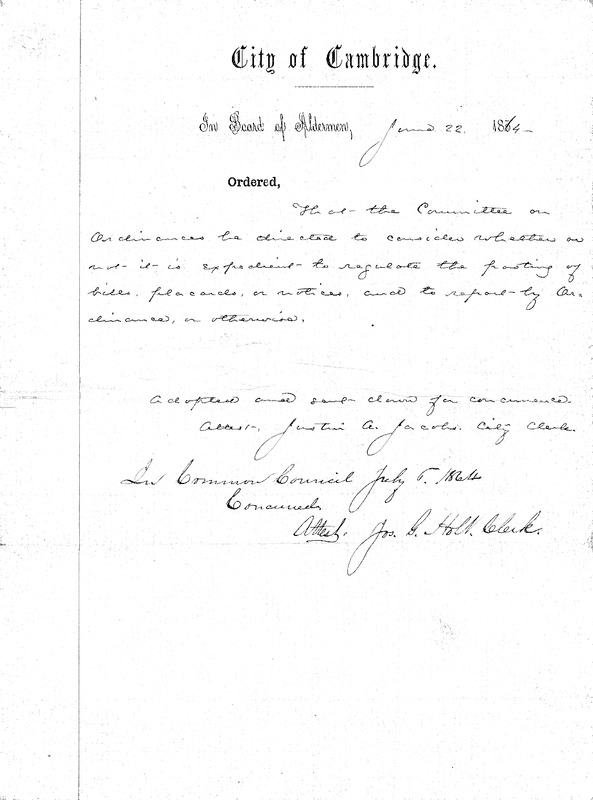 City of Cambridge.
In Board of Aldermen, June 22. 1864
Ordered,
That the Committee on
Ordinances be directed to consider whether or
not it is expedient to regulate the posting of
bills, placards, or notices, and to report by Or-
dinance, or otherwise.
Adopted and sent down for concurrence.
Attest, Justin A. Jacobs. City Clerk.
In Common Council July 6. 1864
Concurred.
Attest. Jos. G. Holt. Clerk.